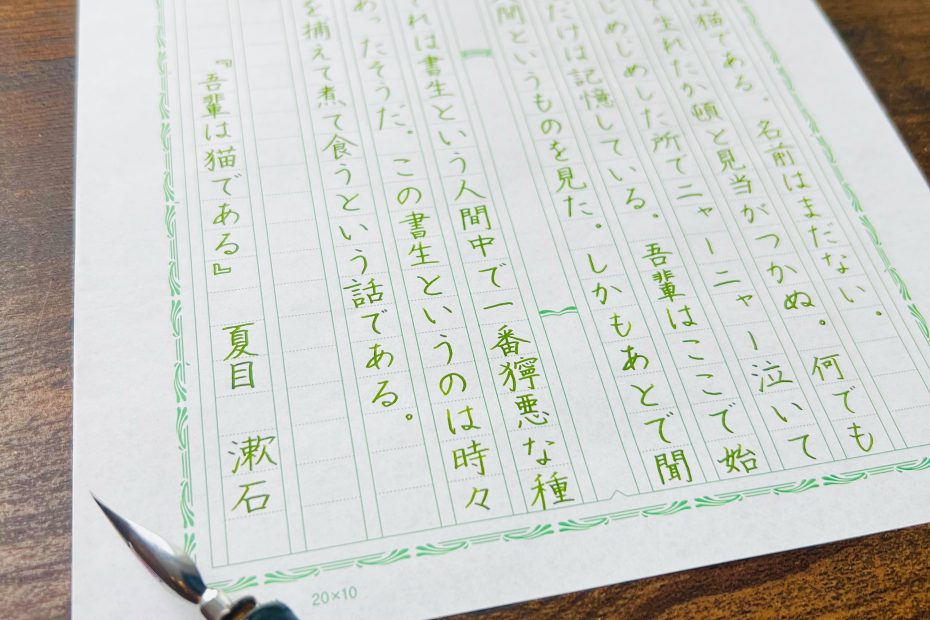 は猫である。名前はまだない。
生れたか頓と見当がつかぬ。何でも
じめじめした所でニャーニャー泣いて
だけは記憶している。吾輩はここで始
間というものを見た。しかもあとで聞
れは書生という人間中で一番獰悪な種
あったそうだ。この書生というのは時々
を捕えて煮て食うという話である。
『吾輩は猫である』 夏目 漱石
20×10